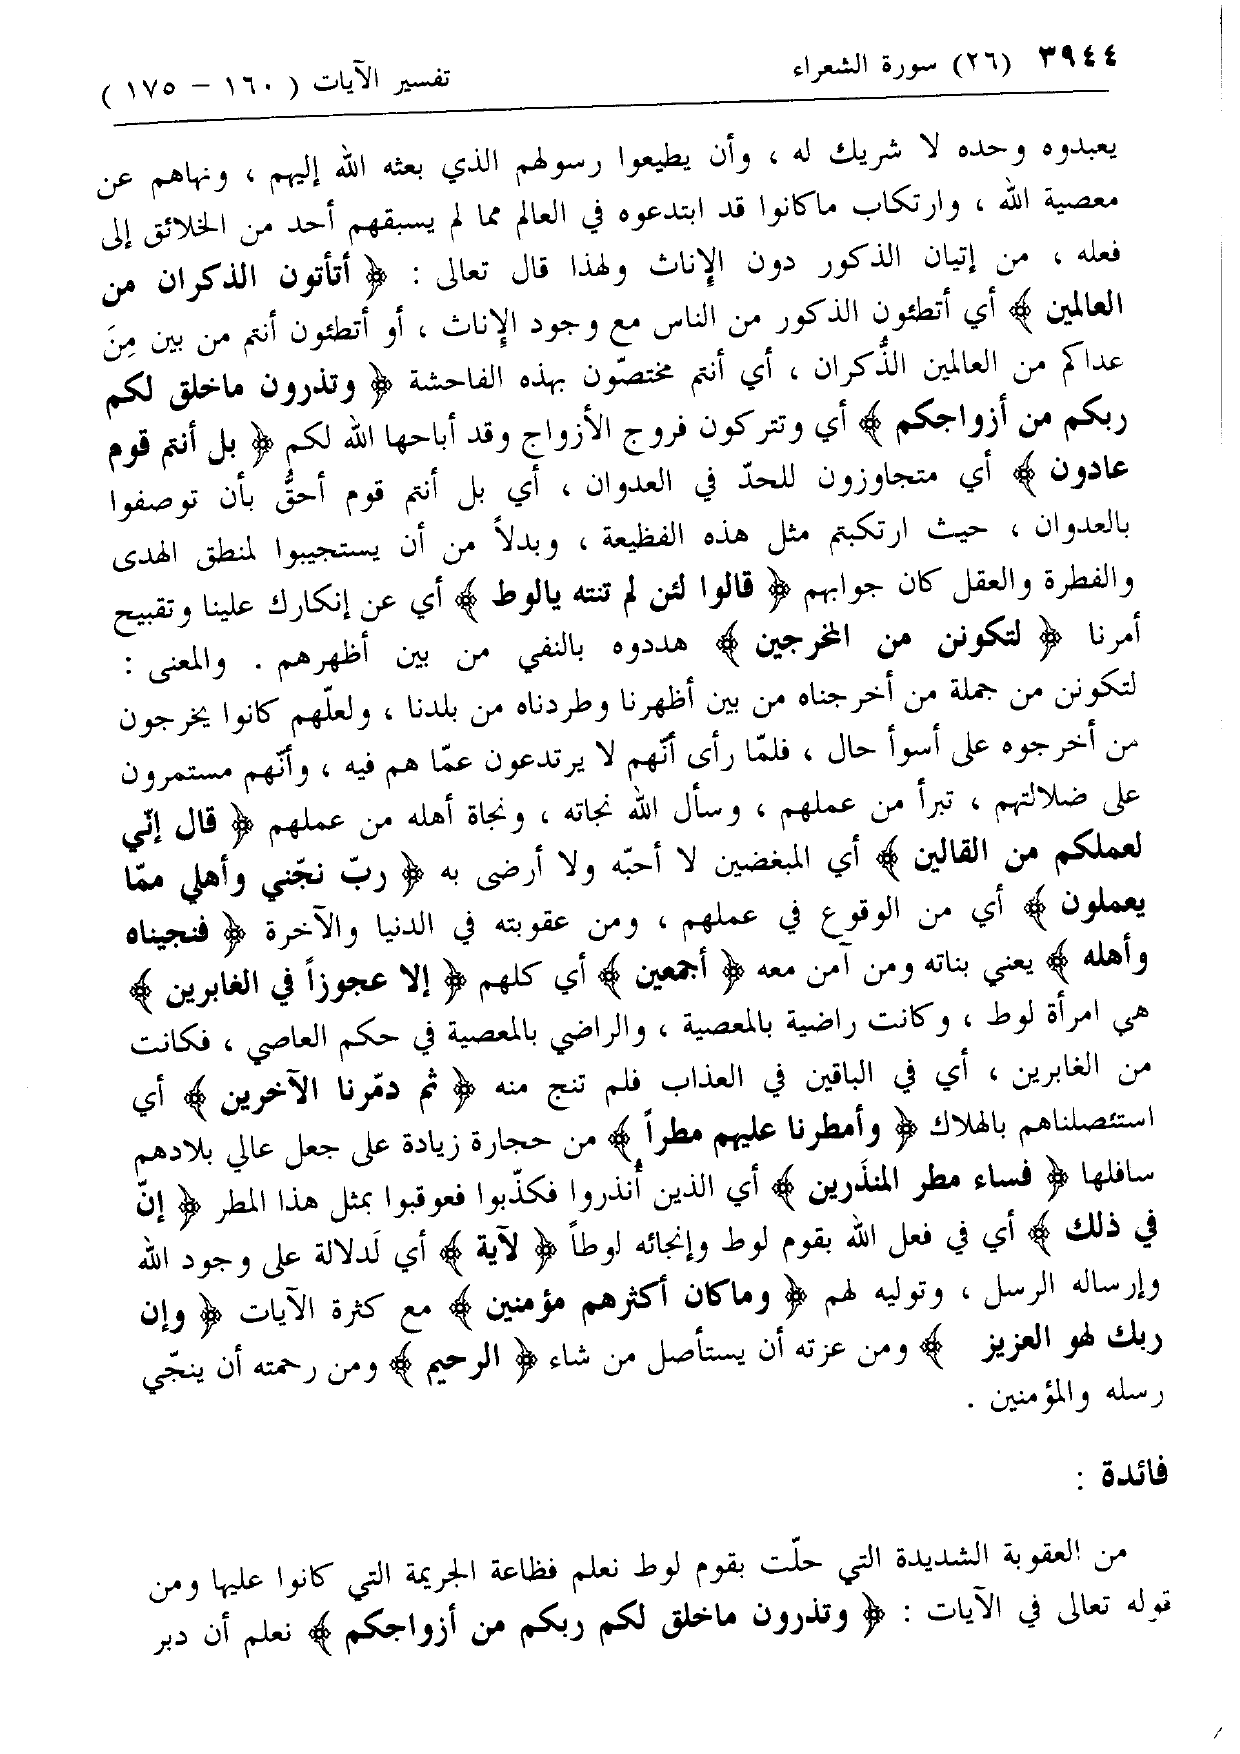 ٣٩٤٤ (٢٦) سورة الشعراء تفسير الآيات ( ١٦٠ - ١٧٥ )
يعبدوه وحده لا شريك له ، وأن يطيعوا رسولهم الذي بعثه الله إليهم ، ونهاهم عن
معصية الله ، وارتكاب ماكانوا قد ابتدعوه في العالم مما لم يسبقهم أحد من الخلائق إلى
فعله ، من إتيان الذكور دون الإناث ولهذا قال تعالى : ﴿ أتأتون الذكران من
العالمين ﴾ أي أتطئون الذكور من الناس مع وجود الإناث ، أو أتطئون أنتم من بين مِنَ
عداكم من العالمين الذُّكران ، أي أنتم مختصّون بهذه الفاحشة ﴿ وتذرون ماخلق لكم
ربكم من أزواجكم ﴾ أي وتتركون فروج الأزواج وقد أباحها الله لكم ﴿ بل أنتم قوم
عادون ﴾ أي متجاوزون للحدّ في العدوان ، أي بل أنتم قوم أحقُّ بأن توصفوا
بالعدوان ، حيث ارتكبتم مثل هذه الفظيعة ، وبدلاً من أن يستجيبوا لمنطق الهدى
والفطرة والعقل كان جوابهم ﴿ قالوا لئن لم تنته يالوط ﴾ أي عن إنكارك علينا وتقبيح
أمرنا ﴿ لتكونن من المخرجين ﴾ هددوه بالنفي من بين أظهرهم . والمعنى :
لتكونن من جملة من أخرجناه من بين أظهرنا وطردناه من بلدنا ، ولعلّهم كانوا يخرجون
من أخرجوه على أسوأ حال ، فلمّا رأى أنّهم لا يرتدعون عمّا هم فيه ، وأنّهم مستمرون
على ضلالتهم ، تبرأ من عملهم ، وسأل الله نجاته ، ونجاة أهله من عملهم ﴿ قال إنّي
لعملكم من القالين ﴾ أي المبغضين لا أحبّه ولا أرضى به ﴿ ربّ نجّني وأهلي ممّا
يعملون ﴾ أي من الوقوع في عملهم ، ومن عقوبته في الدنيا والآخرة ﴿ فنجيناه
وأهله ﴾ يعني بناته ومن آمن معه ﴿ أجمعين ﴾ أي كلهم ﴿ إلا عجوزاً في الغابرين ﴾
هي امرأة لوط ، وكانت راضية بالمعصية ، والراضي بالمعصية في حكم العاصي ، فكانت
من الغابرين ، أي في الباقين في العذاب فلم تنج منه ﴿ ثم دمّرنا الآخرين ﴾ أي
استئصلناهم بالهلاك ﴿ وأمطرنا عليهم مطراً ﴾ من حجارة زيادة على جعل عالي بلادهم
سافلها ﴿ فساء مطر المنذَرين ﴾ أي الذين أُنذروا فكذّبوا فعوقبوا بمثل هذا المطر ﴿ إنّ
في ذلك ﴾ أي في فعل الله بقوم لوط وإنجائه لوطاً ﴿ لآية ﴾ أي لَدلالة على وجود الله
وإرساله الرسل ، وتوليه لهم ﴿ وماكان أكثرهم مؤمنين ﴾ مع كثرة الآيات ﴿ وإن
ربك لهو العزيز ﴾ ومن عزته أن يستأصل من شاء ﴿ الرحيم ﴾ ومن رحمته أن ينجّي
رسله والمؤمنين .
فائدة :
من العقوبة الشديدة التي حلّت بقوم لوط نعلم فظاعة الجريمة التي كانوا عليها ومن
قوله تعالى في الآيات : ﴿ وتذرون ماخلق لكم ربكم من أزواجكم ﴾ نعلم أن دبر